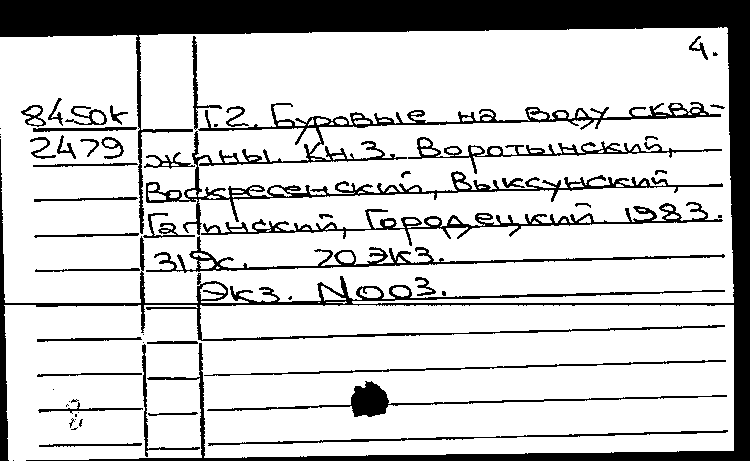 4.
8450к Т.2. Буровые на воду сква-
2479 жины. Кн.3. Воротынский,
Воскресенский, Выксунский,
Гагинский, Городецкий. 1983.
319с. 70 экз.
Экз. N003.